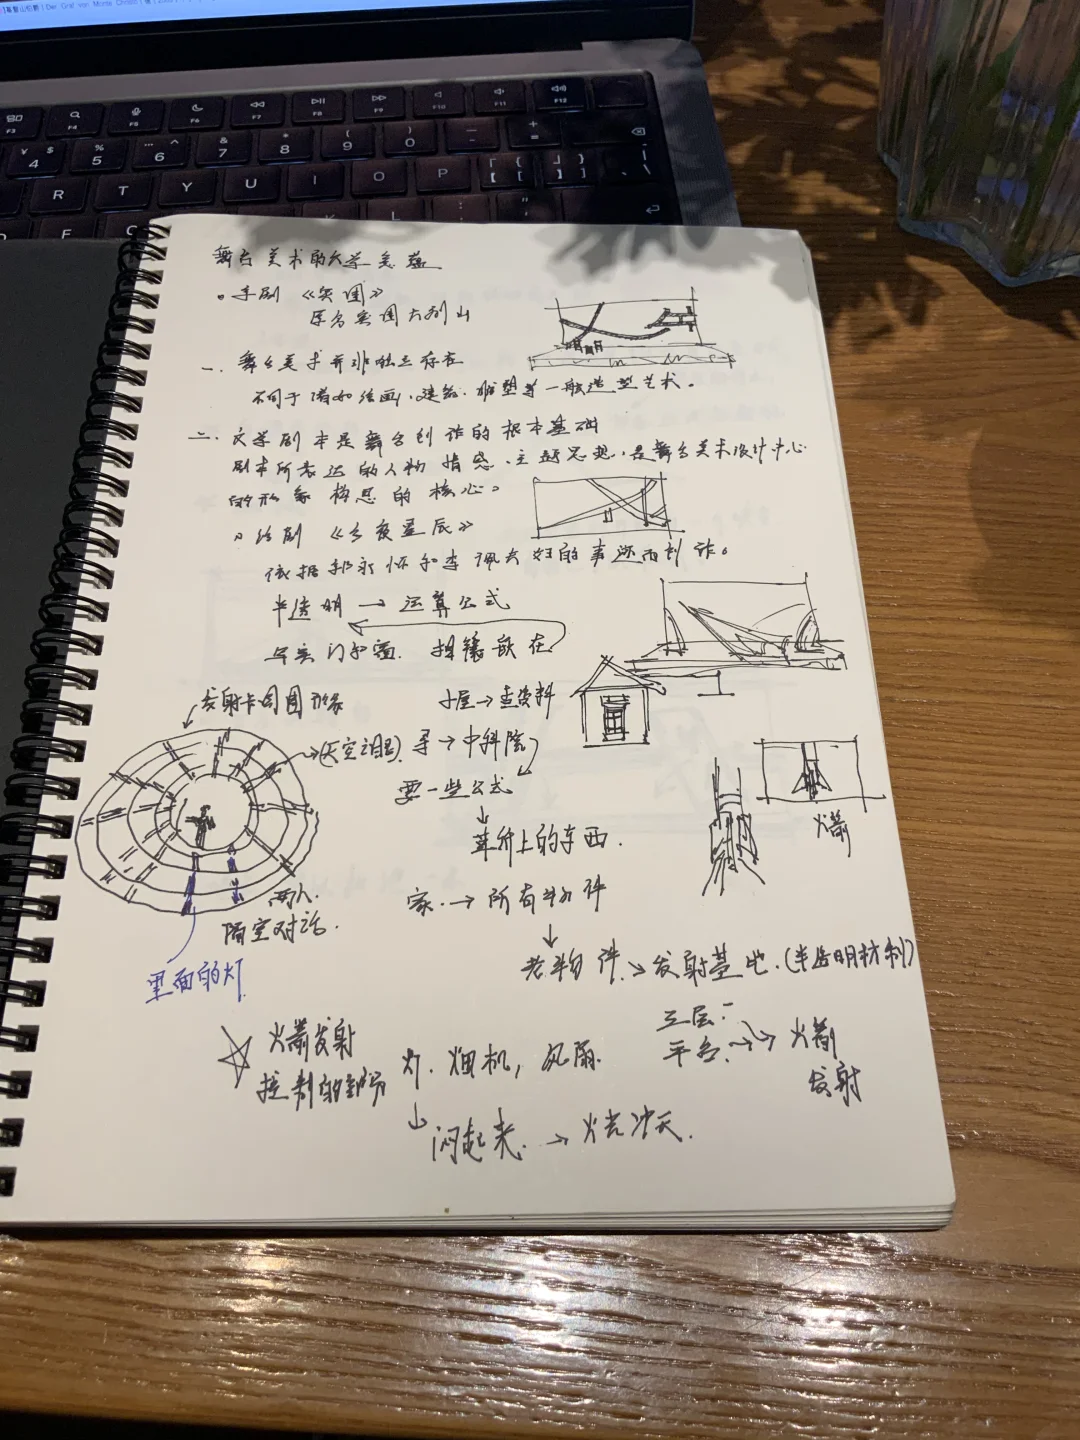 舞台美术的文学
。《突围》
原名突围大别山
一、舞台美术并非独立存在
不同于诸如绘画、建筑、雕塑等一般造型艺术。
二、文学剧本是舞台创作的根本基础
剧本所表达的人物情感、主题思想,是舞台美术设计中心
的形象构思的核心。
。话剧《今夜星辰》
依据郭永怀和李佩夫妇的事迹而创作。
半透明→运算公式
写实门和窗. 镶嵌在
发射卡司圆形
小屋→查资料
(天空之眼) 寻→中科院
要一些公式
↓
草稿上的东西.
火箭
家.→所有物件
两人.
隔空对话.
↓
老物件.→发射基地.(半透明材料)
里面的灯
三层:
平台.→→火箭
发射
☆火箭发射
控制的部分
灯.烟机,风扇.
↓
闪起来.→火光冲天.